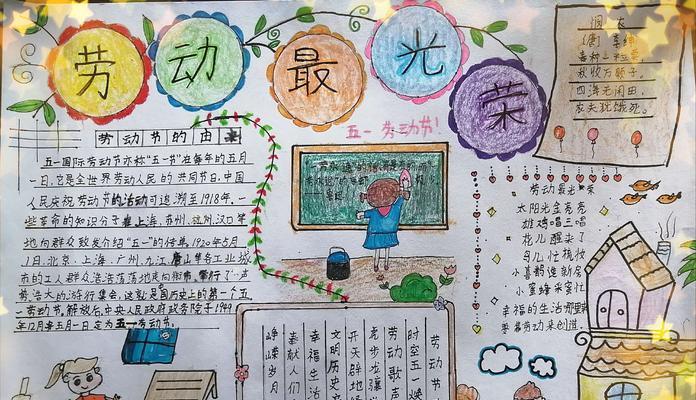 劳动最光荣
悯农
(唐) 李绅
春种一粒粟,
秋收万颗子。
四海无闲田,
农夫犹饿死。
五一劳动节!
劳动节的由来
五一国际劳动节亦称"五一"节在每年的五月
一日,它是全世界劳动人民的共同节日,中国
人民庆祝劳动节的活动可追溯至1918年,一
些革命的知识分子在上海,苏州,汉口等
地向群众散发介绍"五一"的传单,1920年5月
1日,北京,上海,广州,九江,唐山等各工业城
市的工人群众浩浩荡荡地走向街市,举行了一声
势浩大的游行集会,这就是中国历史上的第一个五
一劳动节,解放后,中央人民政府政务院于1949
年12月将5月一日定为五一劳动节。
劳动最光荣
太阳光金亮亮
雄鸡唱三唱
花儿醒来了
鸟儿忙梳妆
小喜鹊造新房
小蜜蜂采蜜忙
幸福的生活哪里来
要靠劳动来创造.
劳动节
时空五一
劳动歌声
虎步龙骧
开天辟地
文明历史
幸福生活
奉献人们
峥嵘岁月